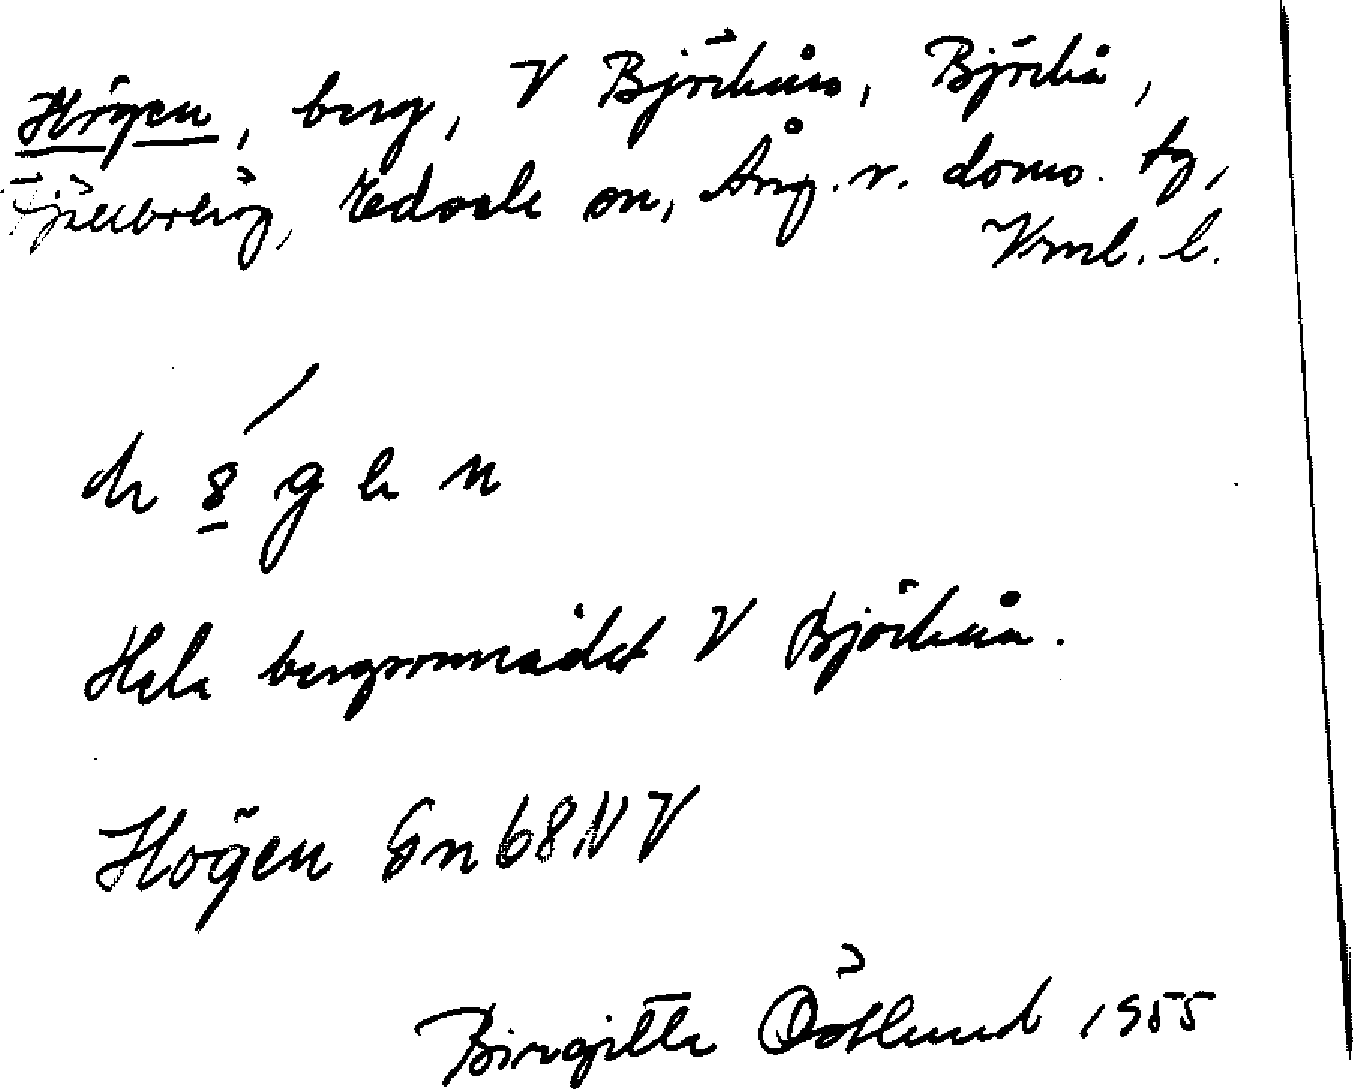 Högen, berg, V Björkån, Björkå,
Edsele sn, Ång. v. doms. tg,
Vrnl. l.
h ö g e n
Hela bergområdet V Björkån.
Högen Gn 68 NV
Birgitta Östlund 1955